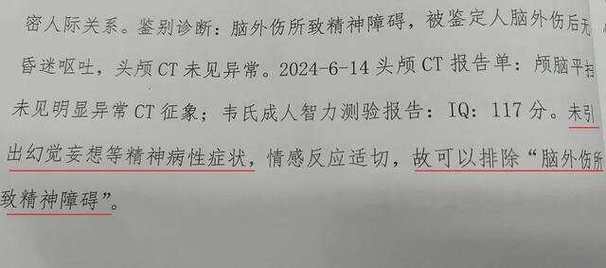 密人际关系。鉴别诊断：脑外伤所致精神障碍，被鉴定人脑外伤后无
昏迷呕吐，头颅CT未见异常。2024-6-14头颅CT报告单：颅脑平扫
未见明显异常CT征象；韦氏成人智力测验报告：IQ：117分。未引
出幻觉妄想等精神病性症状，情感反应适切，故可以排除“脑外伤所
致精神障碍”。